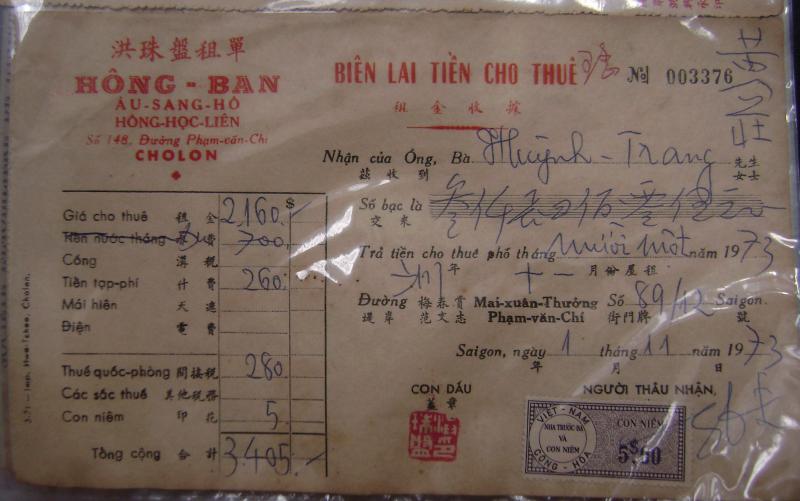 洪珠盤租單
HÔNG - BAN
ÂU-SANG-HÔ
HÔNG-HỌC-LIÊN
Số 148, Đường Phạm-văn-Chí
CHOLON
BIÊN LAI TIỀN CHO THUÊ
№ 003376
租金收據
Nhận của Ông, Bà Huỳnh-Trang 先生
茲收到 女士
Số bạc là 叁仟 佰零伍元
交來
Trả tiền cho thuê phố tháng mười một năm 1973
年 十一 月份屋租
Đường 梅春賞 Mai-xuân-Thưởng Số 89/12 Saigon.
堤岸 范文志 Phạm-văn-Chí 街門牌 號
Saigon, ngày 1 tháng 11 năm 1973
年 月 日
CON DẤU
蓋章
NGƯỜI THÂU NHẬN,
$
Giá cho thuê 租金 2.160.
Tiền nước tháng 費 700,
Cống 溝稅
Tiền tạp-phí 什費 260.
Mái hiên 天遮
Điện 電費
Thuế quốc-phòng 間接税 280.
Các sắc thuế 其他税務
Con niêm 印花 5.
Tổng cộng 合計 3.405.
VIỆT-NAM
CỘNG-HÒA
NHA TRƯỚC BẠ
VÀ
CON NIÊM
CON NIÊM
5$00